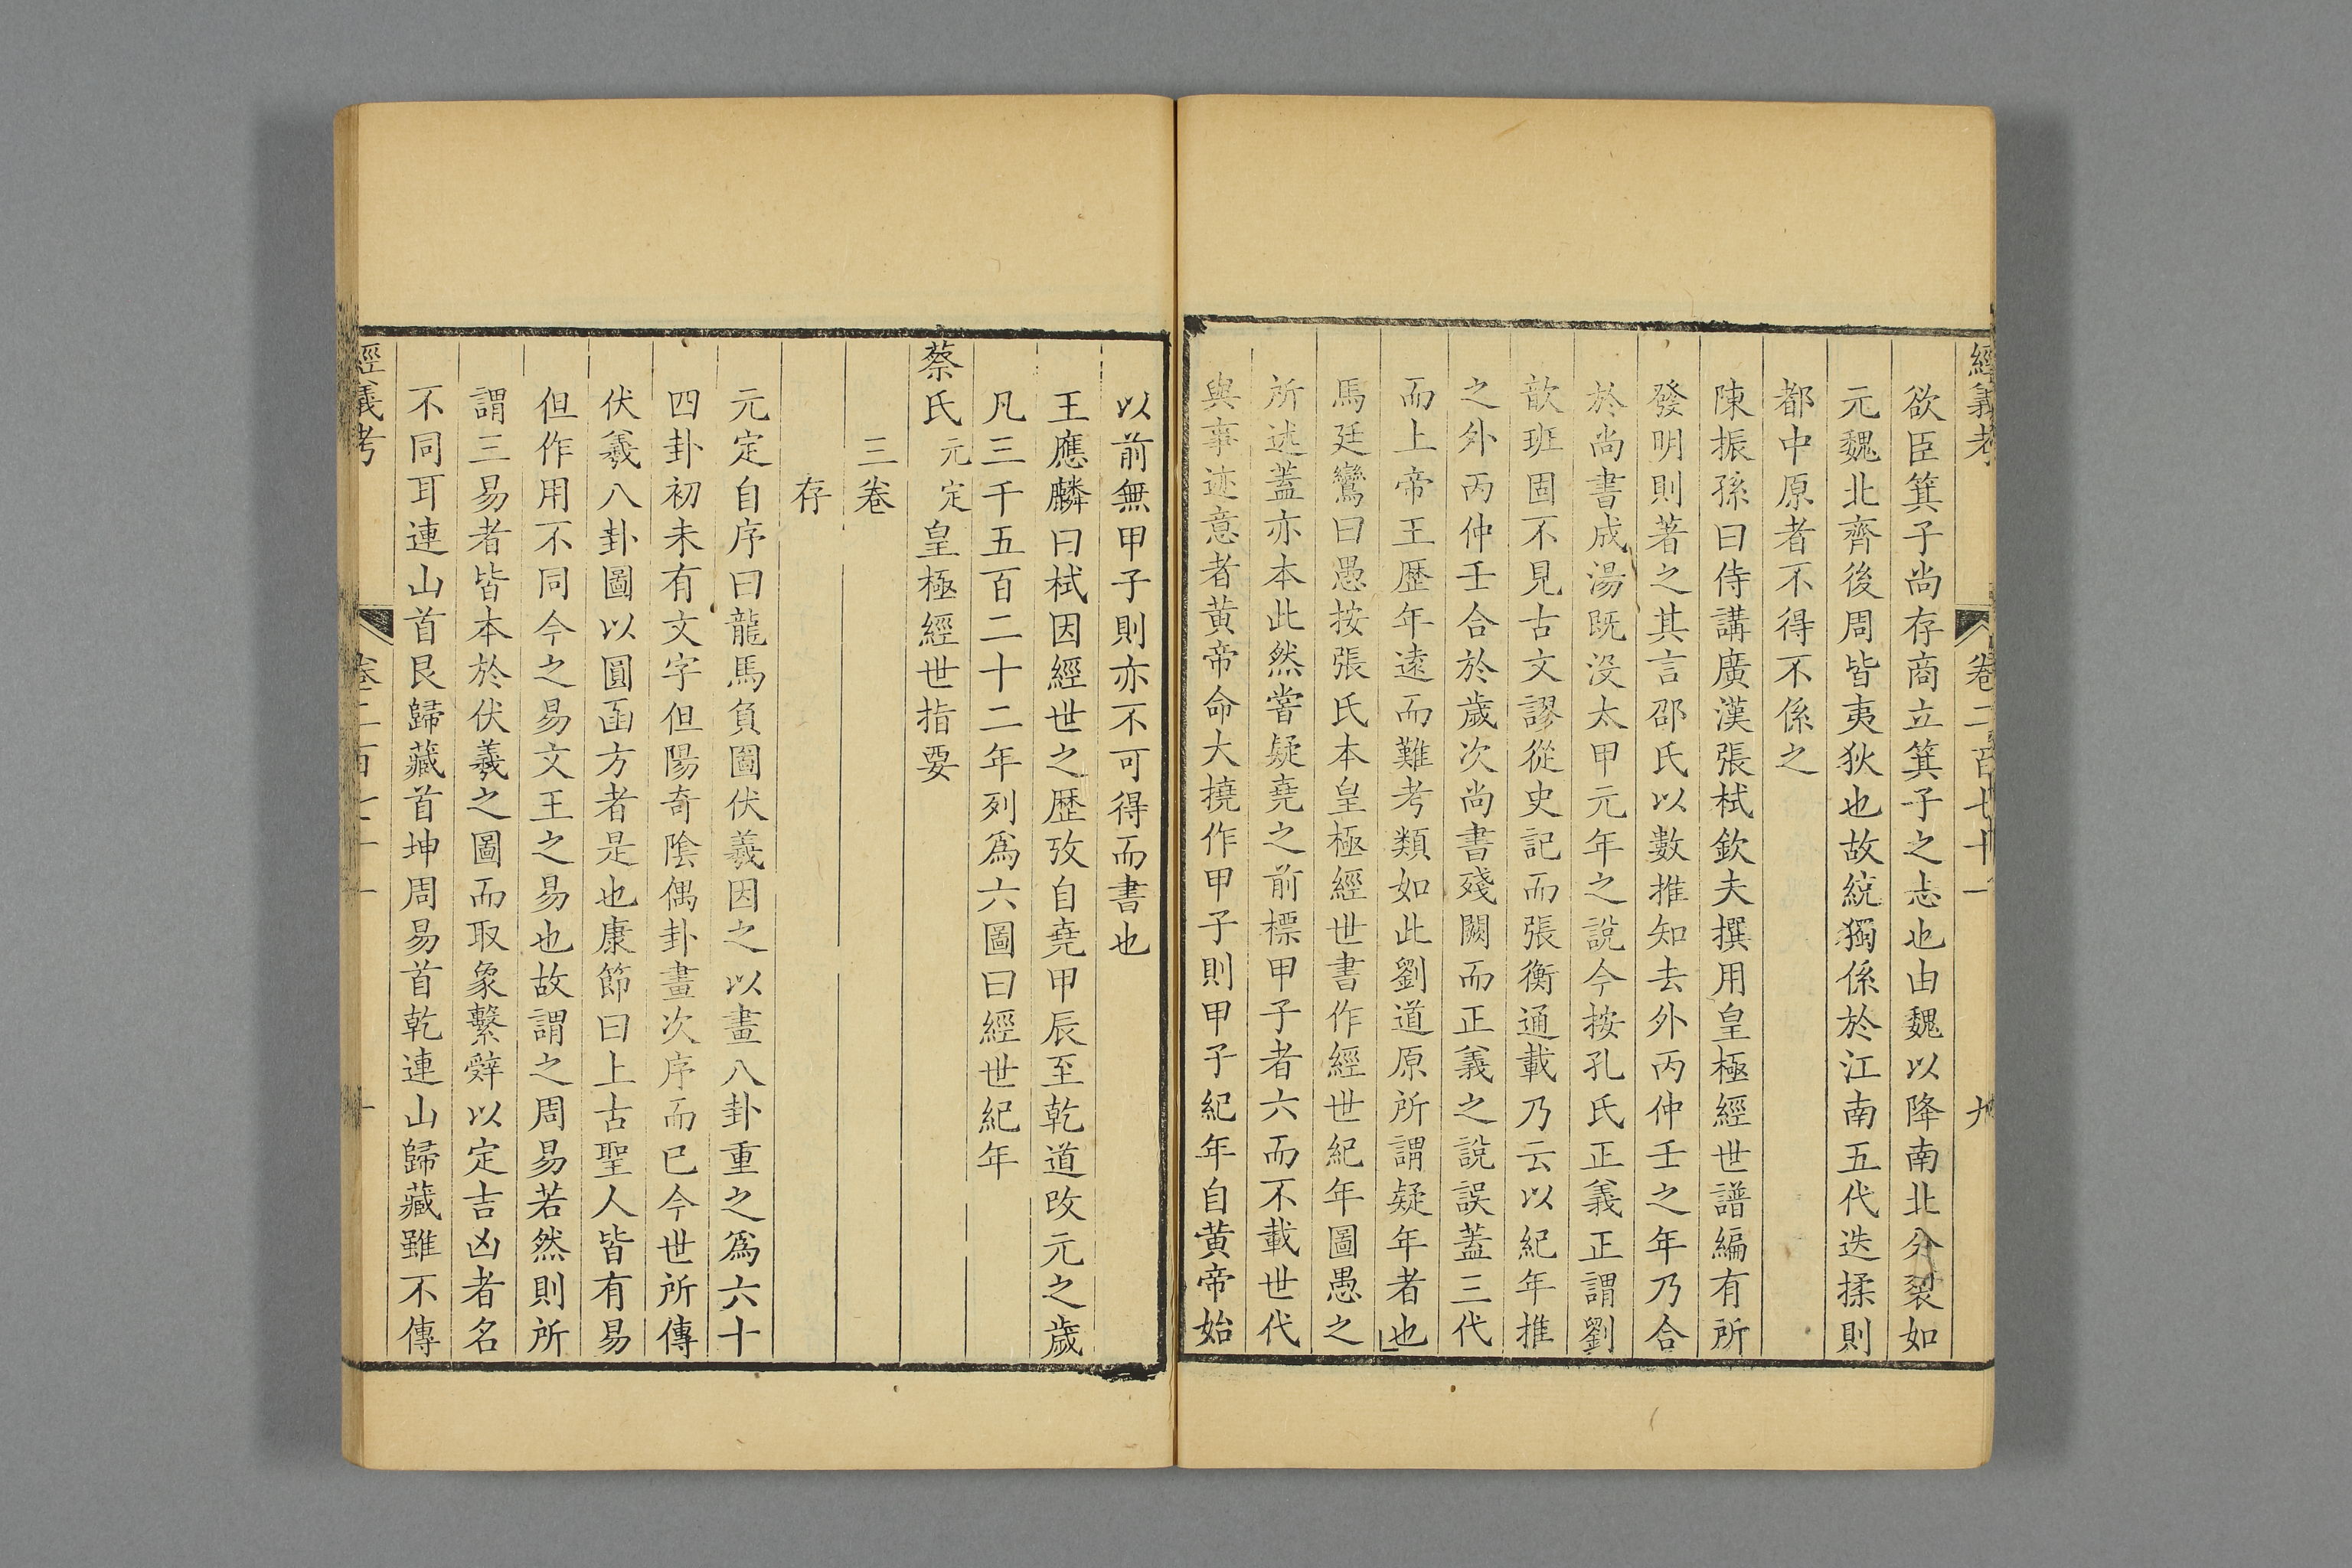 經義考 卷二百七十一 九
欲臣箕子尚存商立箕子之志也由魏以降南北分裂如
元魏北齊後周皆夷狄也故統獨係於江南五代迭揉則
都中原者不得不係之
陳振孫曰侍講廣漢張栻欽夫撰用皇極經世譜編有所
發明則著之其言邵氏以數推知去外丙仲壬之年乃合
於尚書成湯既没太甲元年之說今按孔氏正義正謂劉
歆班固不見古文謬從史記而張衡通載乃云以紀年推
之外丙仲壬合於歲次尚書殘闕而正義之說誤蓋三代
而上帝王歷年遠而難考類如此劉道原所謂疑年者也
馬廷鸞曰愚按張氏本皇極經世書作經世紀年圖愚之
所述蓋亦本此然嘗疑堯之前標甲子者六而不載世代
與事迹意者黄帝命大撓作甲子則甲子紀年自黄帝始
以前無甲子則亦不可得而書也
王應麟曰栻因經世之歷攷自堯甲辰至乾道改元之歲
凡三千五百二十二年列爲六圖曰經世紀年
蔡氏元定皇極經世指要
三卷
存
元定自序曰龍馬負圖伏羲因之以畫八卦重之爲六十
四卦初未有文字但陽奇陰偶卦畫次序而已今世所傳
伏羲八卦圖以圓函方者是也康節曰上古聖人皆有易
但作用不同今之易文王之易也故謂之周易若然則所
謂三易者皆本於伏羲之圖而取象繫辭以定吉凶者名
不同耳連山首艮歸藏首坤周易首乾連山歸藏雖不傳
經義考 卷二百七十一 十